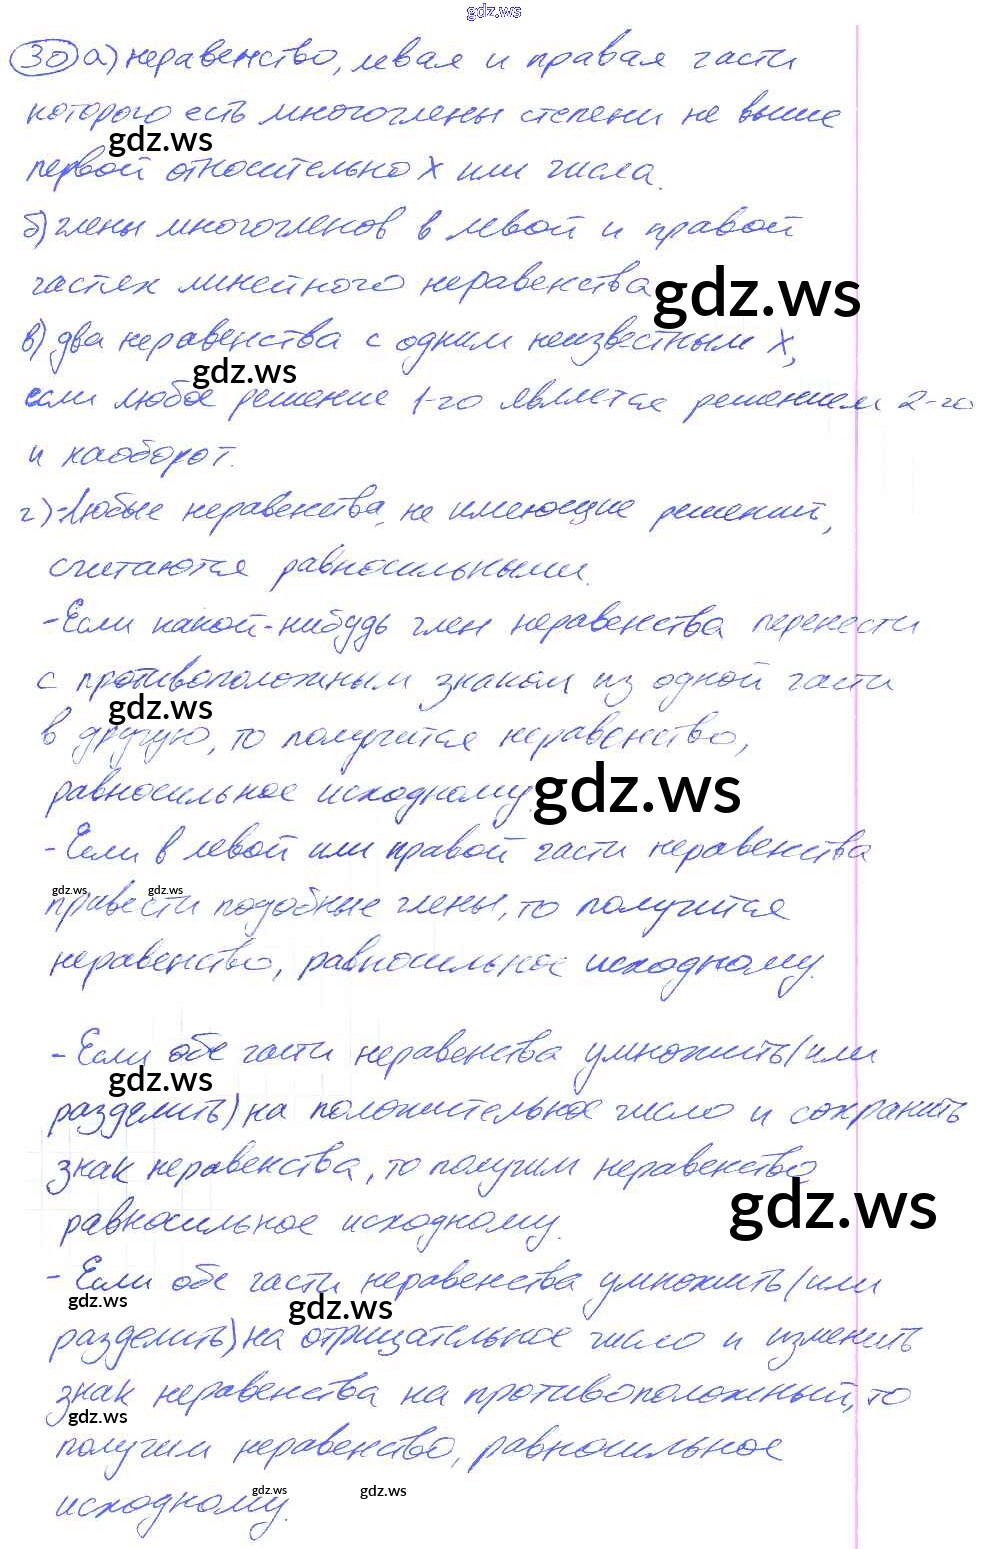 gdz.ws
30 а) неравенство, левая и правая части
которого есть многочлены степени не выше
gdz.ws
первой относительно х или числа.
б) члены многочленов в левой и правой
частях линейного неравенства
gdz.ws
в) два неравенства с одним неизвестным х,
gdz.ws
если любое решение 1-го является решением 2-го
и наоборот.
г) -Любые неравенства, не имеющие решений,
считаются равносильными.
-Если какой-нибудь член неравенства перенести
с противоположным знаком из одной части
gdz.ws
в другую, то получится неравенство,
равносильное исходному.
gdz.ws
-Если в левой или правой части неравенства
gdz.ws gdz.ws
привести подобные члены, то получится
неравенство, равносильное исходному.
- Если обе части неравенства умножить (или
gdz.ws
разделить) на положительное число и сохранить
знак неравенства, то получим неравенство
gdz.ws
равносильное исходному.
- Если обе части неравенства умножить (или
gdz.ws gdz.ws
разделить) на отрицательное число и изменить
знак неравенства на противоположный, то
gdz.ws
получим неравенство, равносильное
gdz.ws gdz.ws
исходному.